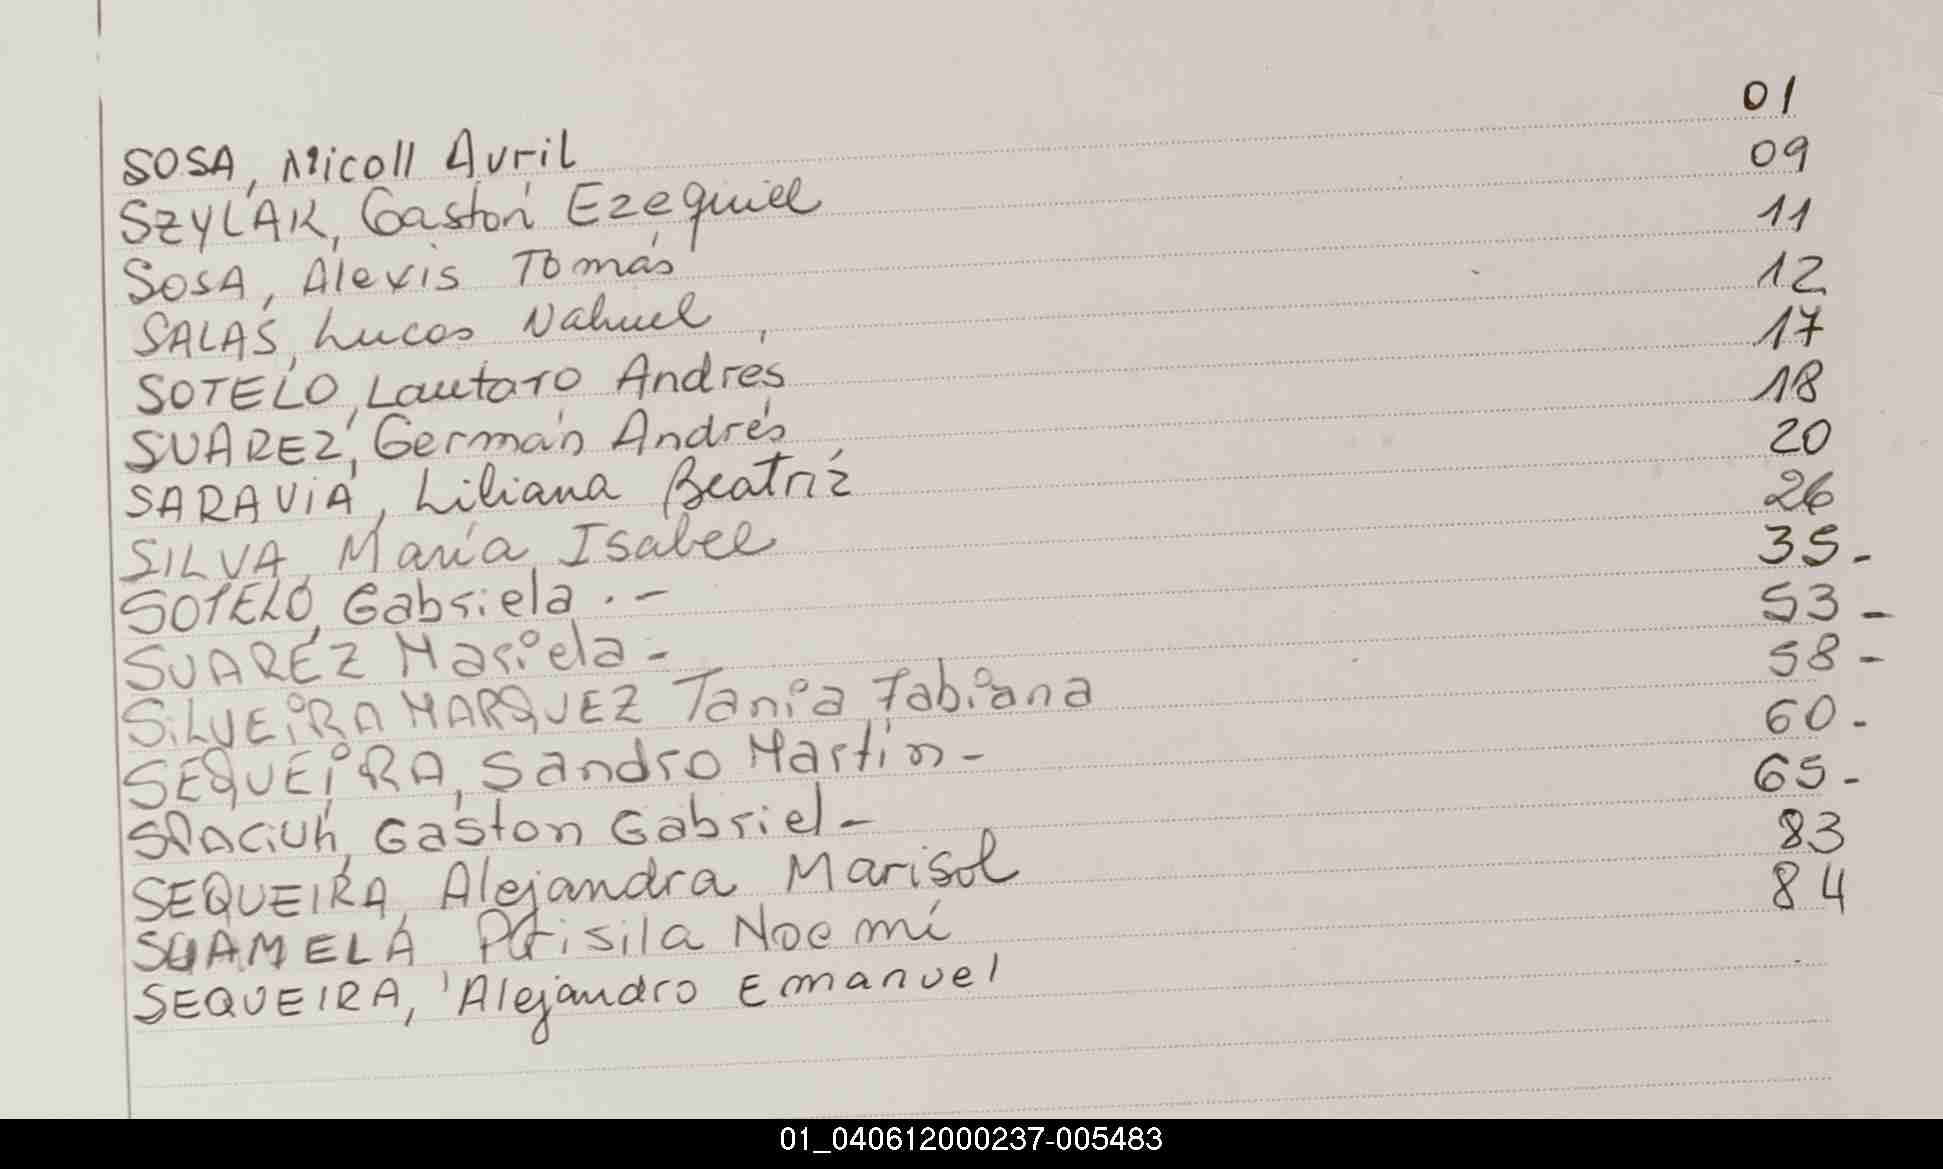 SOSA, Nicoll Avril 01
SZYLAK, Gastón Ezequiel 09
SOSA, Alexis Tomás 11
SALAS, Lucas Nahuel 12
SOTELO, Lautaro Andrés 17
SUAREZ, Germán Andrés 18
SARAVIA, Liliana Beatriz 20
SILVA, María Isabel 26
SOTELO, Gabriela .- 35-
SUAREZ Mariela - 53-
SILVEIRA MARQUEZ Tania Fabiana 58-
SEQUEIRA, Sandro Martín - 60-
SPACIUH, Gaston Gabriel - 65-
SEQUEIRA, Alejandra Marisol 83
Prisila Noemí 84
SEQUEIRA, Alejandro Emanuel
01_040612000237-005483